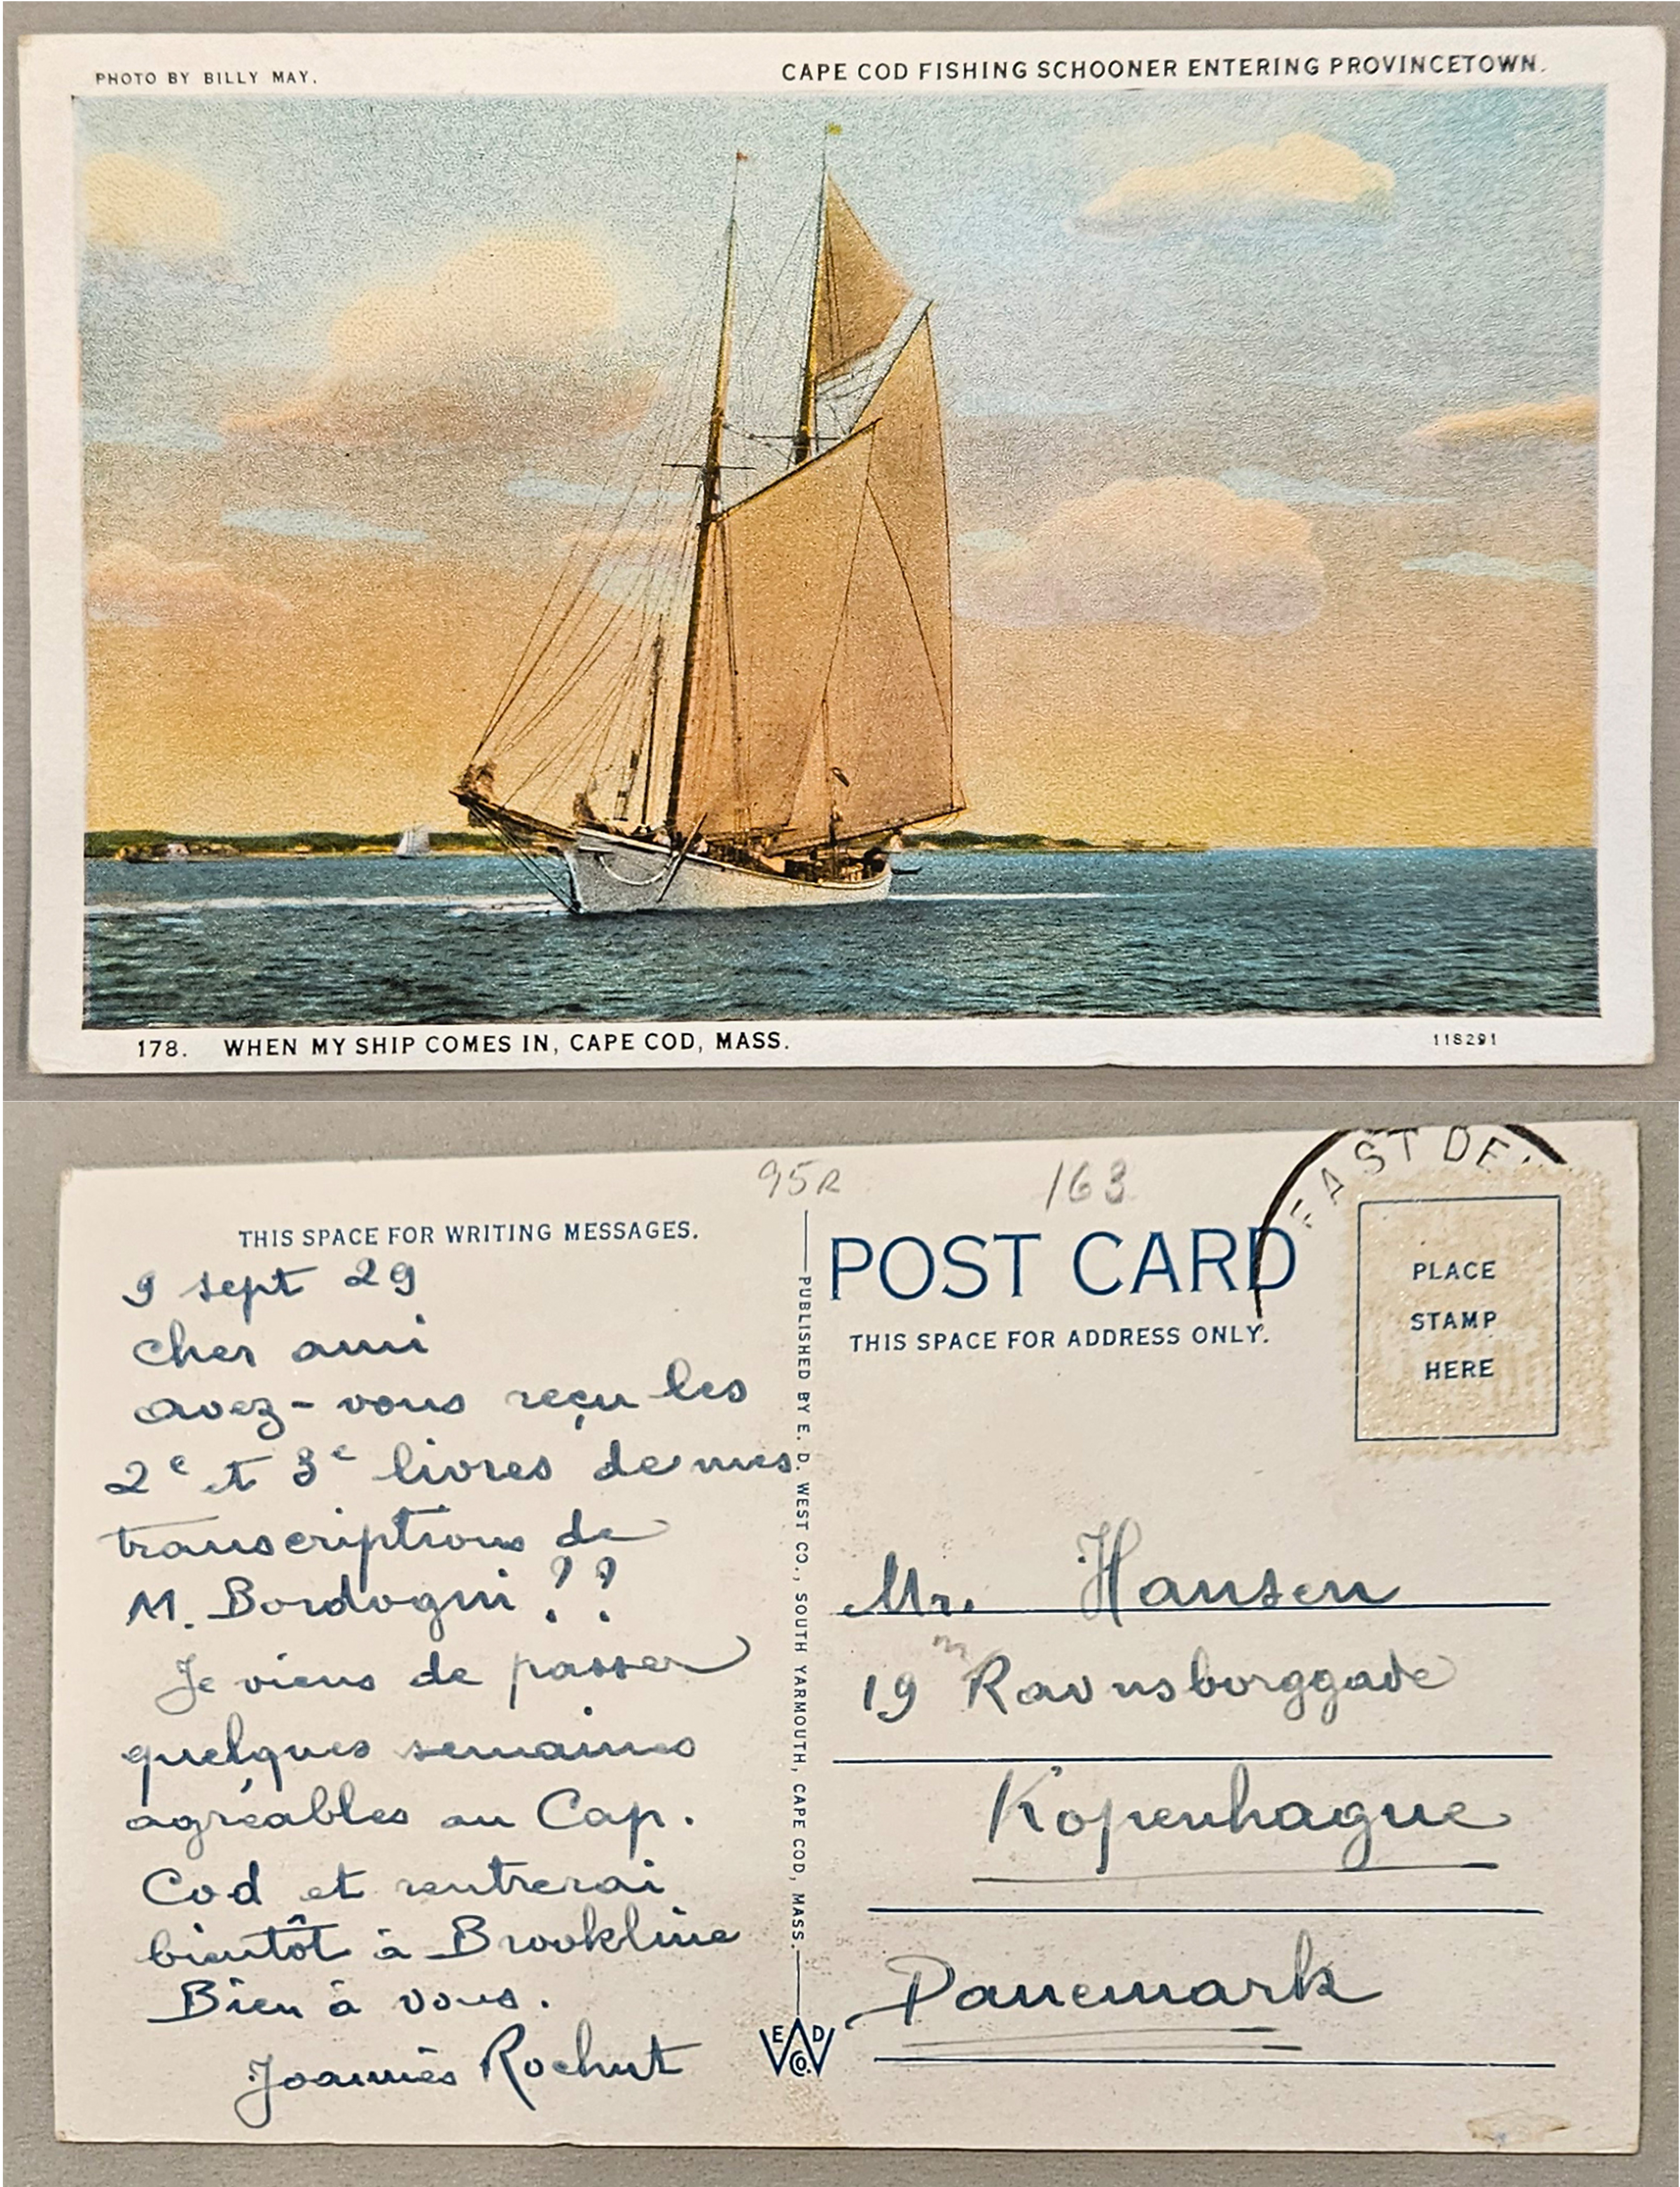 PHOTO BY BILLY MAY.
CAPE COD FISHING SCHOONER ENTERING PROVINCETOWN.
178. WHEN MY SHIP COMES IN, CAPE COD, MASS.
118291
95R
163
EAST DE
THIS SPACE FOR WRITING MESSAGES.
9 sept 29
cher ami
avez-vous reçu les
2e et 3e livres de mes
transcriptions de
M. Bordogni ??
Je viens de passer
quelques semaines
agréables au Cap.
Cod et rentrerai
bientôt à Brookline
Bien à vous.
Joannès Rochut
PUBLISHED BY E. D. WEST CO., SOUTH YARMOUTH, CAPE COD, MASS.
E D
W
CO.
POST CARD
THIS SPACE FOR ADDRESS ONLY.
PLACE
STAMP
HERE
Mr. Hansen
19 Ravnsborggade
Kopenhague
Danemark